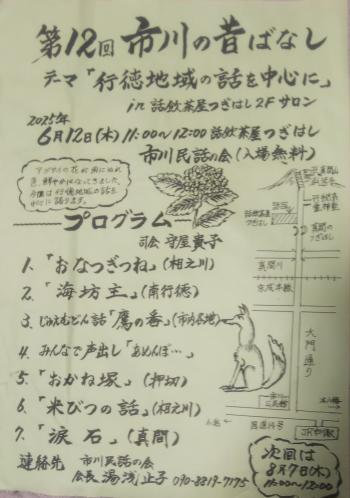 第12回 市川の昔ばなし
テーマ「行徳地域の話を中心に」
in 話飲茶屋つぎはし2Fサロン
2025年
6月12日(木) 11:00〜12:00 話飲茶屋つぎはし
市川民話の会(入場無料)
アジサイの花が雨にぬれ
色鮮やかになってきました
今回は行徳地域の話を
中心に語ります。
プログラム
司会 守屋貴子
1. 「おなつぎつね」(相之川)
2. 「海坊主」(南行徳)
3. じゅえむどん話「鷹の番」(市内各地)
4. みんなで声出し「あめんぼ…」
5. 「おかね塚」(押切)
6. 「米びつの話」(相之川)
7. 「涙石」(真間)
連絡先 市川民話の会
会長 湯浅止子 090-8819-7175
話飲茶屋
つぎはし
真間の
つぎはし
真間川
京成本線
大門通り
国道14号
JR市川駅
次回は
8月7日(木)
11:00〜12:00